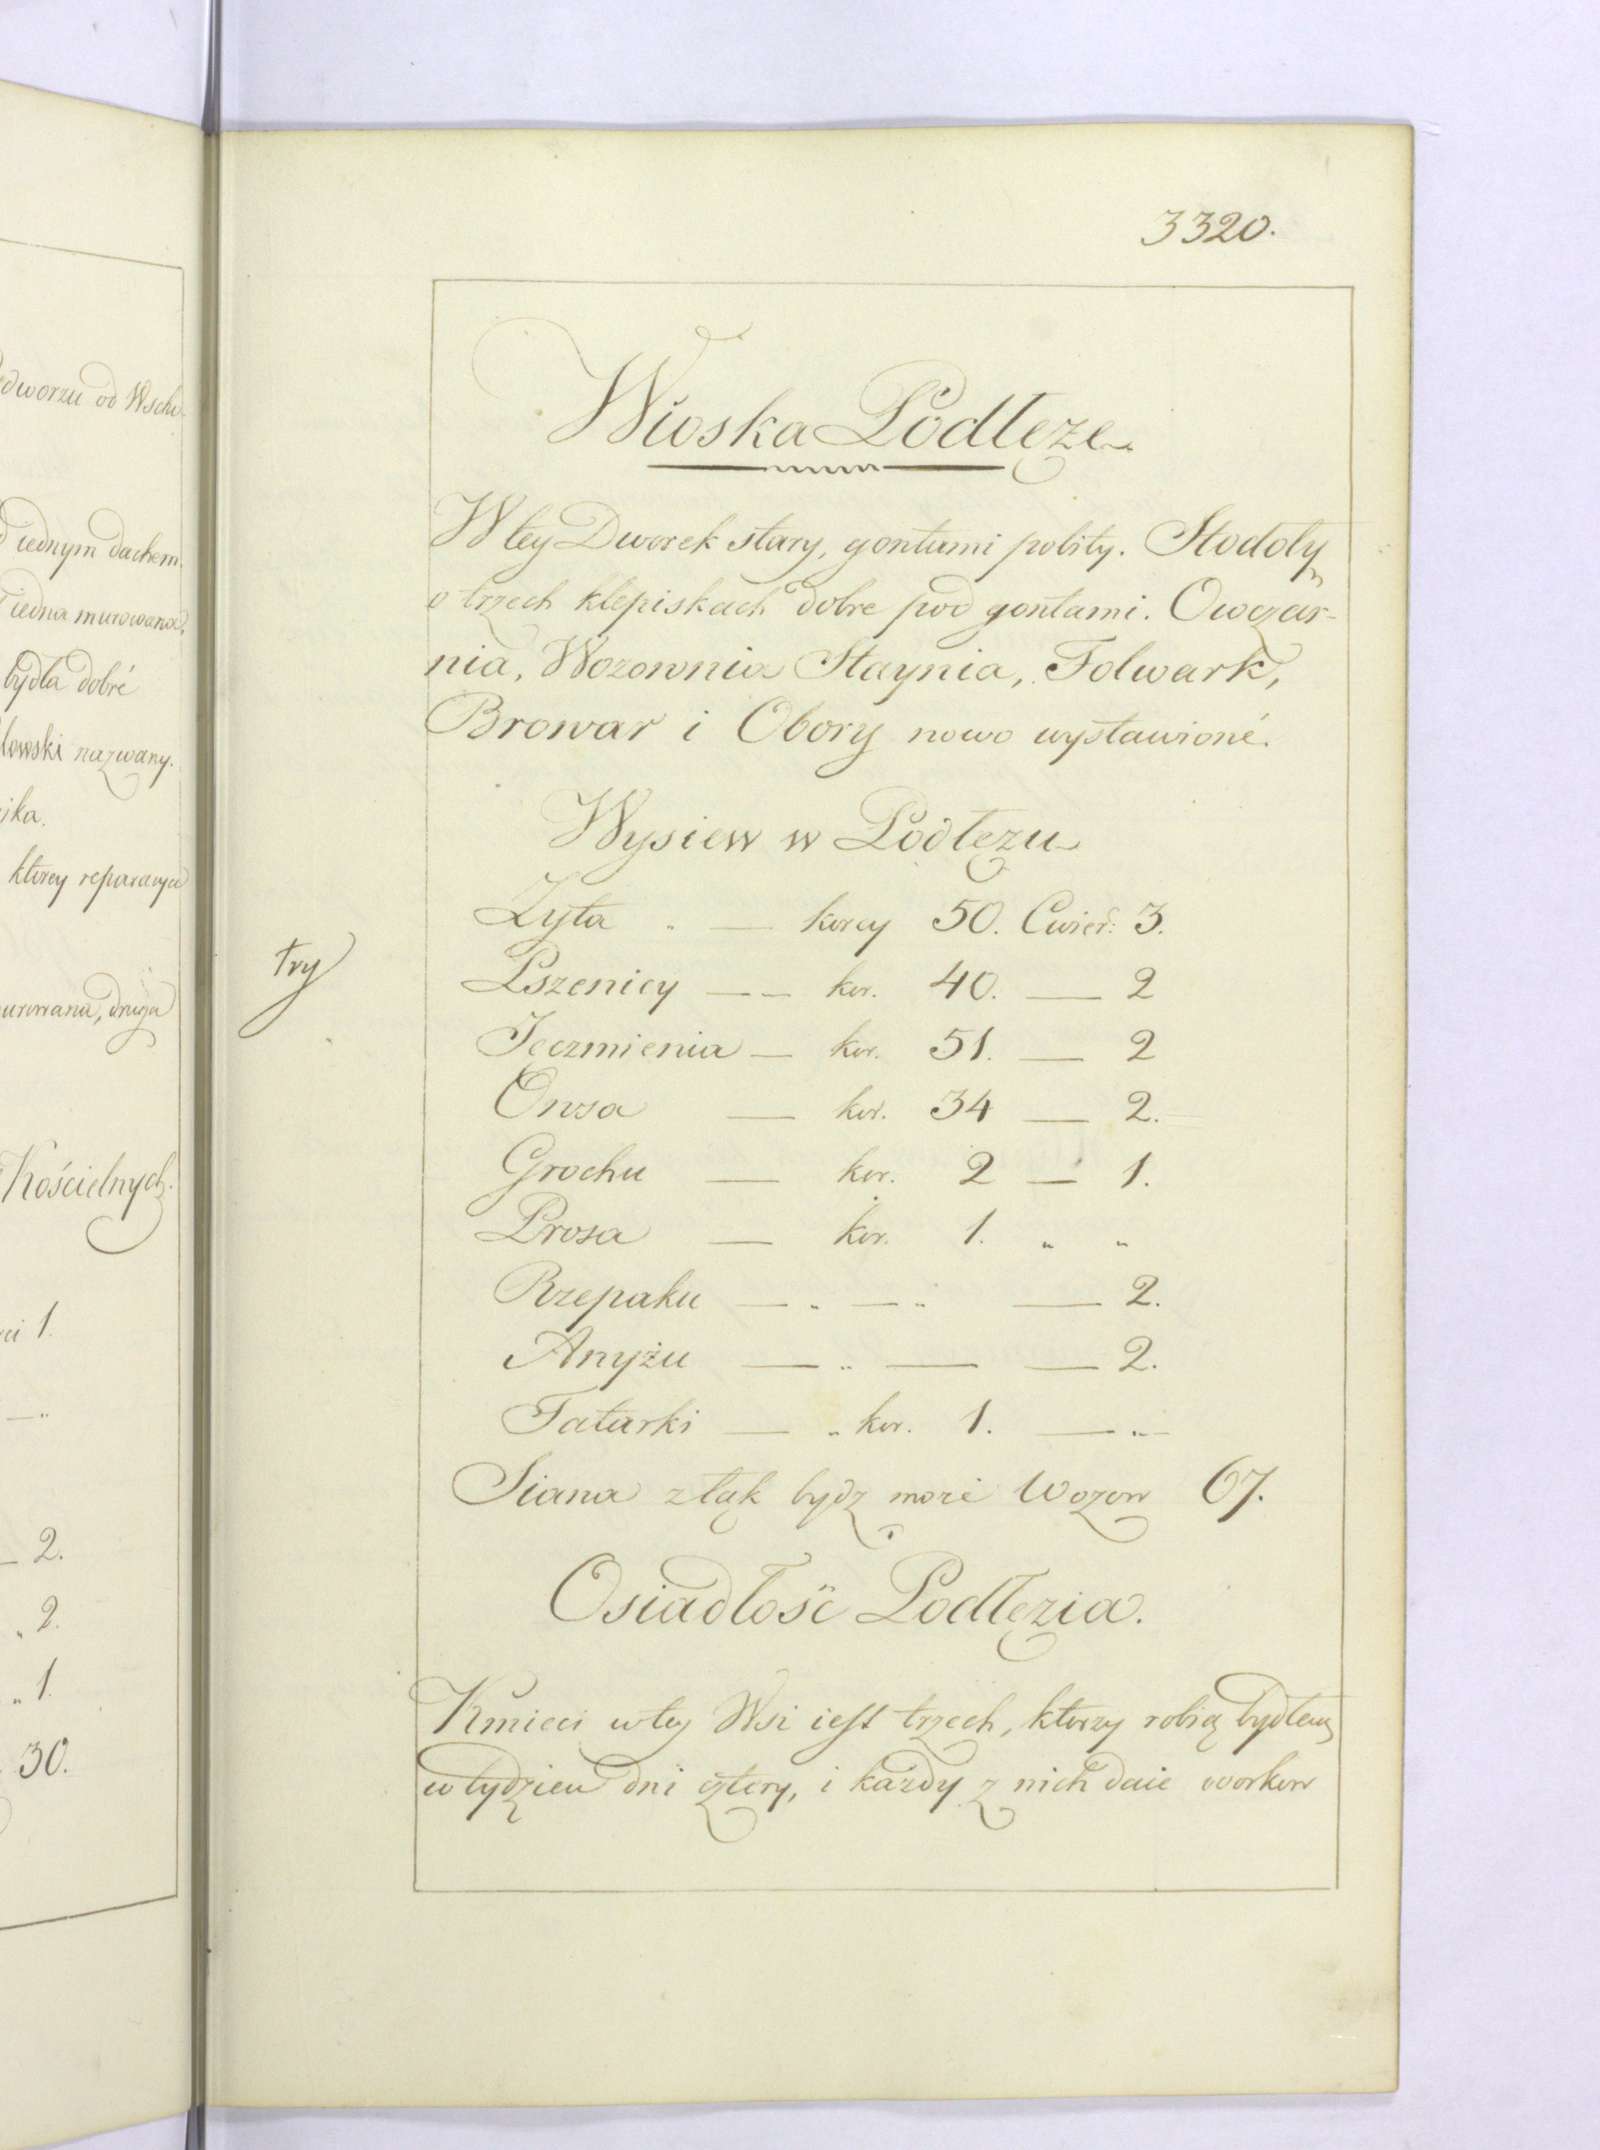 3320.
Wioska Podłęże
W tey Dworek stary, gontami pobity. Stodoły
o trzech klepiskach dobre pod gontami. Owczar-
nia, Wozownia Staynia, Folwark,
Browar i Obory nowo wystawioné.
Wysiew w Podłężu
Żyta „ — korcy 50. Cwierć: 3.
Pszenicy — — kor. 40. — 2
Jęczmienia — kor. 51. — 2
Owsa — kor. 34 — 2.
Grochu — kor. 2 — 1.
Prosa — kor. 1. „ „
Rzepaku — „ — „ — 2.
Anyżu — „ — — 2.
Tatarki — „ kor. 1. — „ —
Siana z łąk bydz może Wozow 67.
Osiadłość Podłęzia.
Kmieci w tey Wsi iest trzech, ktorzy robią bydłem
w tydzien dni cztery, i każdy z nich daie workow
try
dworzu od Wscho-
iednym dachem.
iedna murowana,
bydła dobré
lowski nazwany.
ika.
ktorey reparacya
urowana, druga
Kościelnych.
ci 1.
— „
— 2.
„ 2.
„ 1.
30.